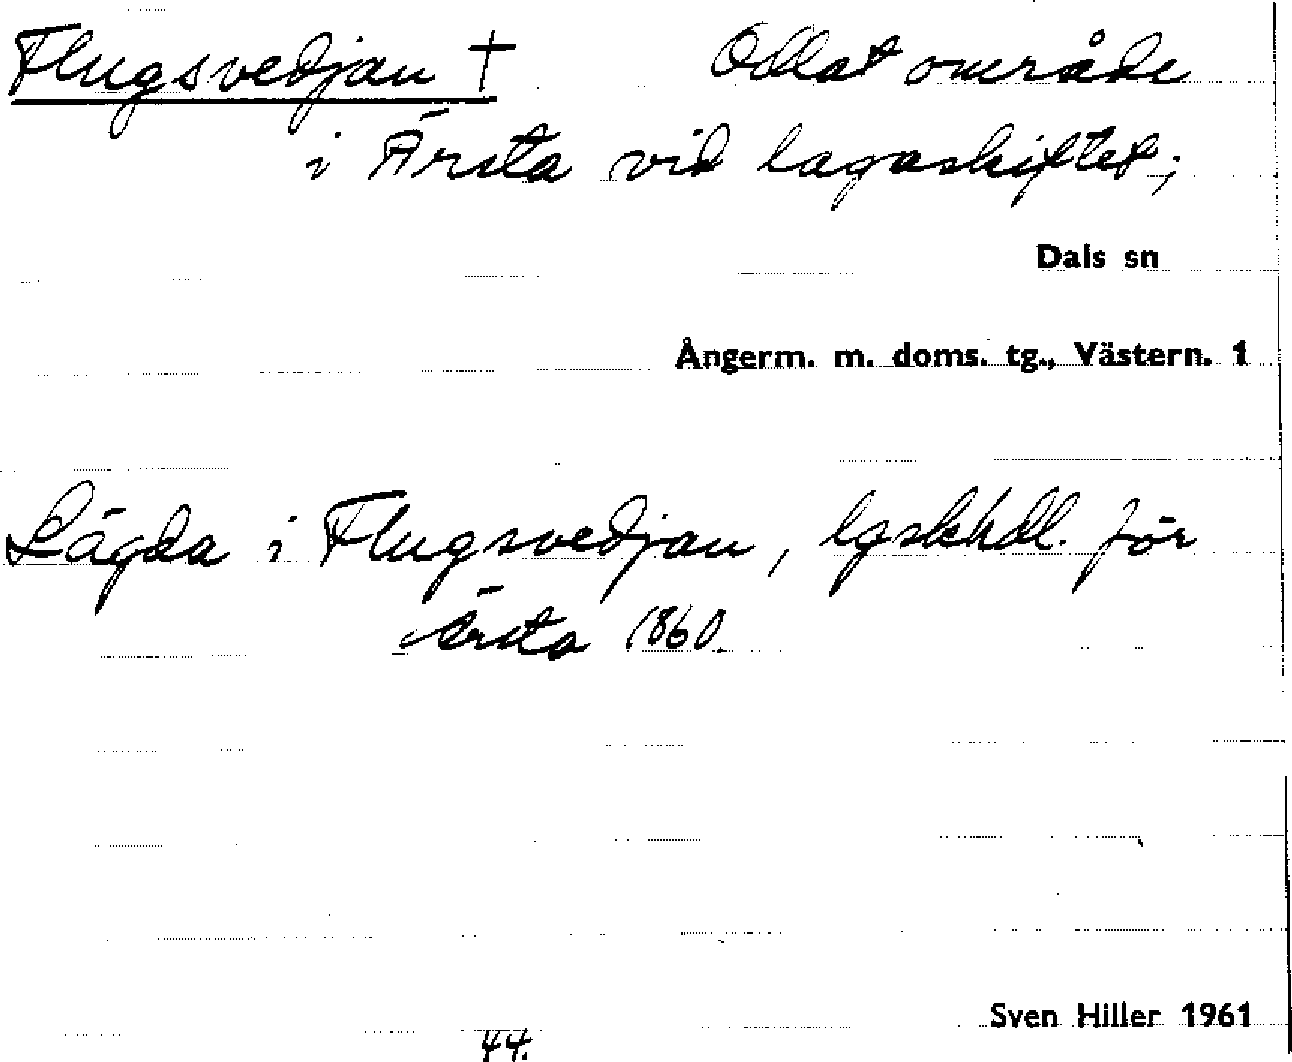 Flugsvedjan † Odlat område
i Ärsta vid lagaskiftet;
Dals sn
Ångerm. m. doms. tg., Västern. 1
Lägda i Flugsvedjan, lgskhdl. för
Ärsta 1860.
Sven Hiller 1961
44.